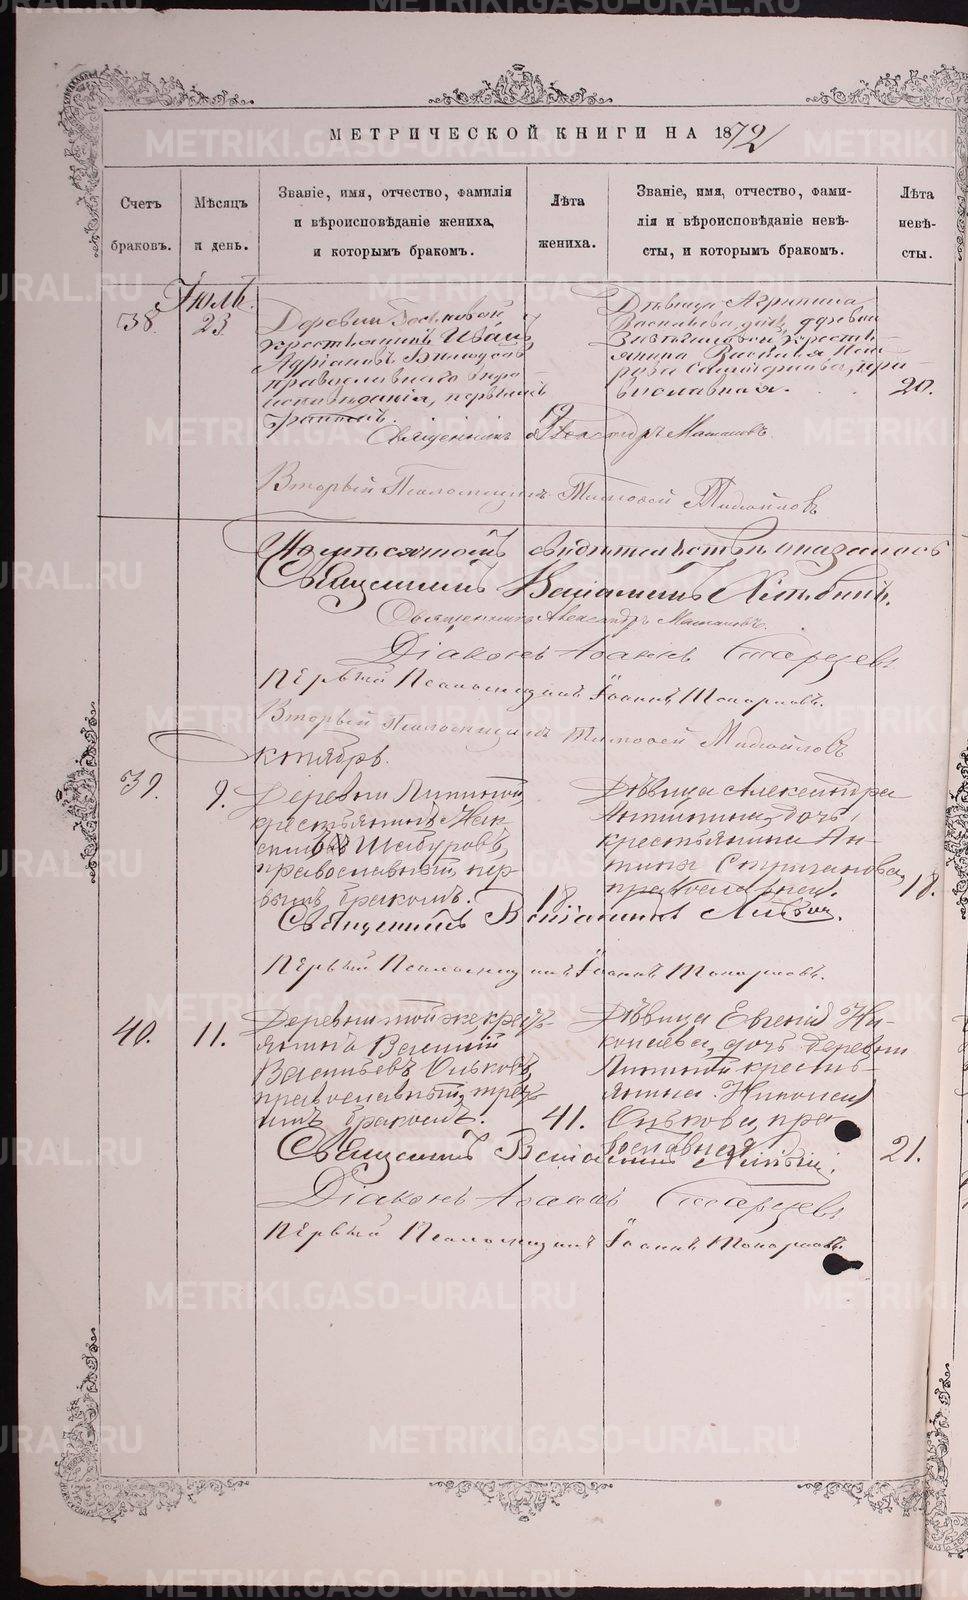 МЕТРИЧЕСКОЙ КНИГИ НА 1872
Счетъ
браковъ.
Мѣсяцъ
и день.
Званіе, имя, отчество, фамилія
и вѣроисповѣданіе жениха,
и которымъ бракомъ.
Лѣта
жениха.
Званіе, имя, отчество, фами-
лія и вѣроисповѣданіе невѣ-
сты, и которымъ бракомъ.
Лѣта
невѣ-
сты.
Іюль.
38.
23
Деревни
крестьянинъ Иванъ
Адріановъ
православнаго вѣро-
исповѣданія, первымъ
бракомъ.
19
Дѣвица Агрипина
Васильева, дочь, деревни
крестъ-
янина Василья
пра-
вославная.
20.
Священникъ Александръ
Вторый Псаломщикъ Тимоѳей Михайловъ
свидѣтельствъ оказалось
Священникъ Веніаминъ
Священникъ Александръ
Діаконъ Іоаннъ Старцевъ
Первый Псаломщикъ Іоаннъ Топорковъ.
Вторый Псаломщикъ Тимоѳей Михайловъ
Октябрь.
39.
9.
Деревни Липиной
крестьянинъ
Шабуровъ,
православный, пер-
вымъ бракомъ.
18.
Дѣвица Александра
Антипина, дочь
крестьянина Ан-
типа Стриганова,
православная.
18.
Священникъ Веніаминъ
Первый Псаломщикъ Іоаннъ Топорковъ.
40.
11.
Деревни той же, кресть-
янинъ Василій
Васильевъ Ольковъ,
православный, треть-
имъ бракомъ.
41.
Дѣвица Евгенія Ни-
колаева, дочь деревни
Липиной кресть-
янина Николая
Олькова, пра-
вославная
21.
Священникъ Веніаминъ
Діаконъ Іоаннъ Старцевъ
Первый Псаломщикъ Іоаннъ Топорковъ.
METRIKI.GASO-URAL.RU